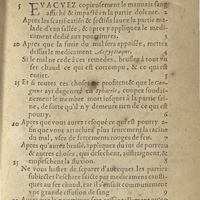 5 EVACVEZ copieusement le mauuais sang
affiché & impacté en la partie dolente.
Apres les scarifications & sections lauez la partie mala-
de d'eau sallee, & apres y appliquez le medica-
ment dedié aux pourritures.
20 Apres que la fuite du mal sera appaisee, mettez
dessus le medicament Aegyptiacum.
Si le mal ne cede à ces remedes, bruslez à tout le
fer chaud ce qui est corrompu, & ce qui est
entier.
25 Et si toutes ces choses ne profitent & que le Can-
grene ayt degeneré en sphacele, coupez soudai-
nement le membre mort iusques à la partie sai-
ne, de sorte qu'il n'y demeure rien de ce qui est
pourry.
Apres que vous aurez osté ce qui est pourry a-
fin que vous arrachiez plus seurement la racine
du mal, vsez de ferrements rouges de feu. 7
Apres l'auoir bruslé, appliquez du ius de porreau
& autres choses, qui dessechent, astraignent, &
25 empeschent la fluxion. 8
Ne vous hastez de separer d'auecques les parties
subiectes l'eschare faicte par medicaments caus-
tiques ou au feu chaud, car il suruient commune-
ment vne grande effusion de sang